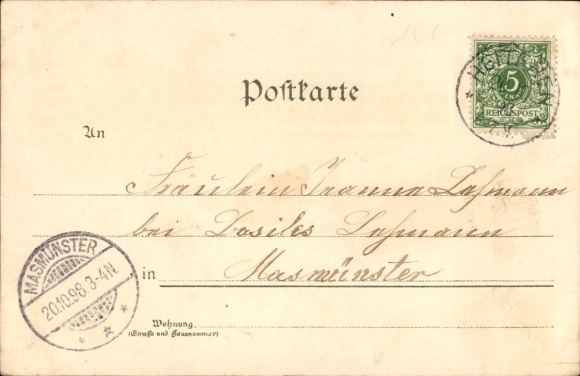 Postkarte
5
REICHSPOST
An
Fräulein Jeanne Lehmann
bei Basiles Lehmann
in Masmünster
MASMÜNSTER
20.10.98.3-4N.
Wohnung
(Straße und Hausnummer)